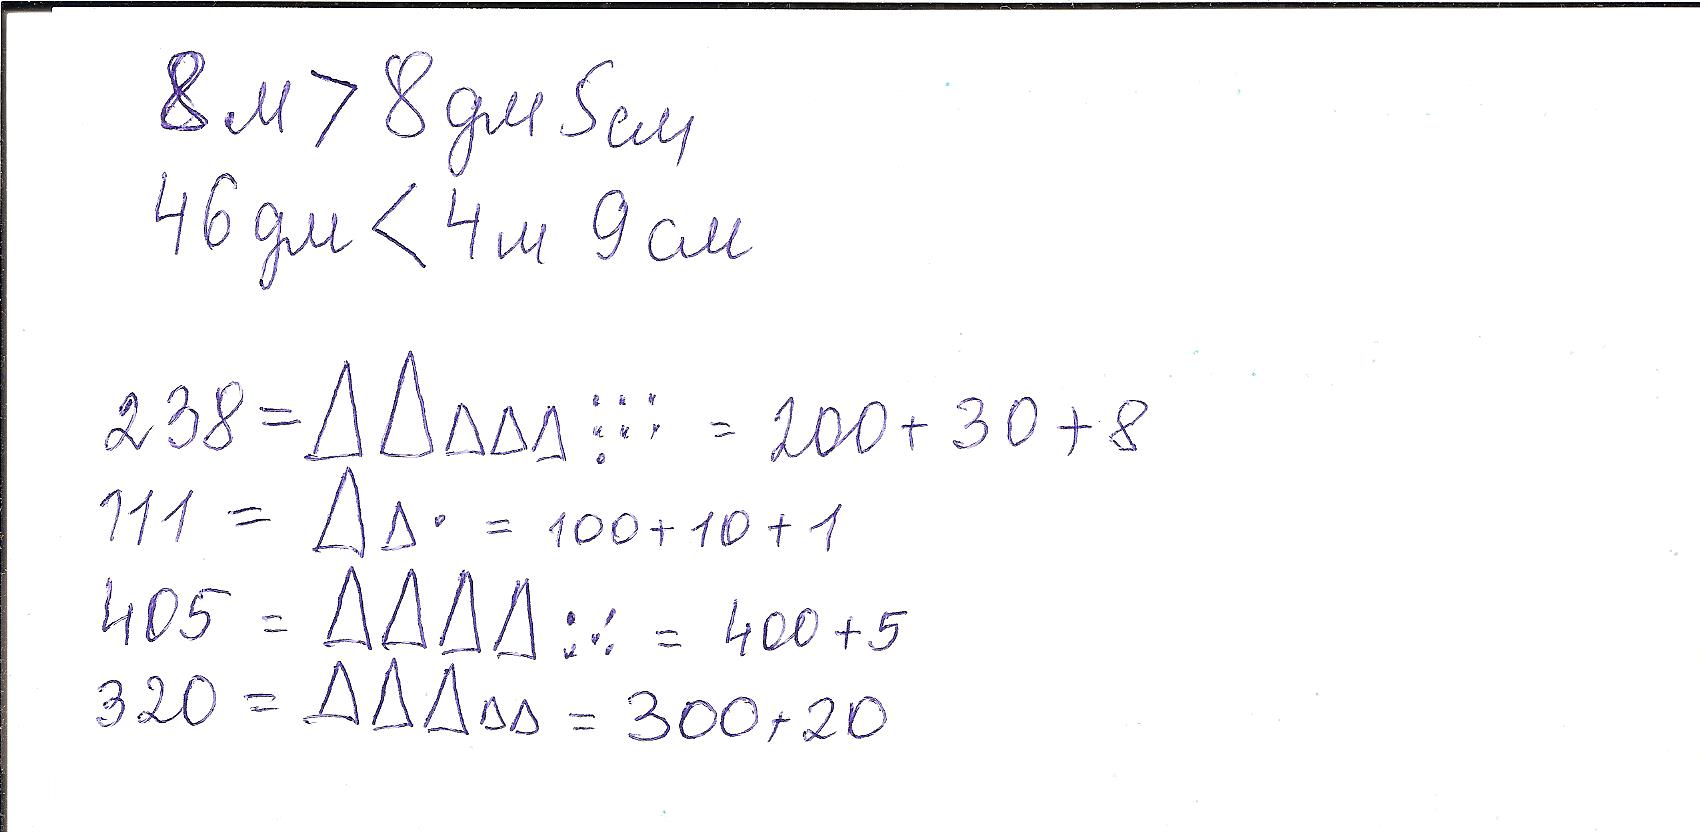 8 м > 8 дм 5 см
46 дм < 4 м 9 см
238 = △ △ △ △ △ ⁝⁝⁝ = 200 + 30 + 8
111 = △ △ · = 100 + 10 + 1
405 = △ △ △ △ ⁙ = 400 + 5
320 = △ △ △ △ △ = 300 + 20